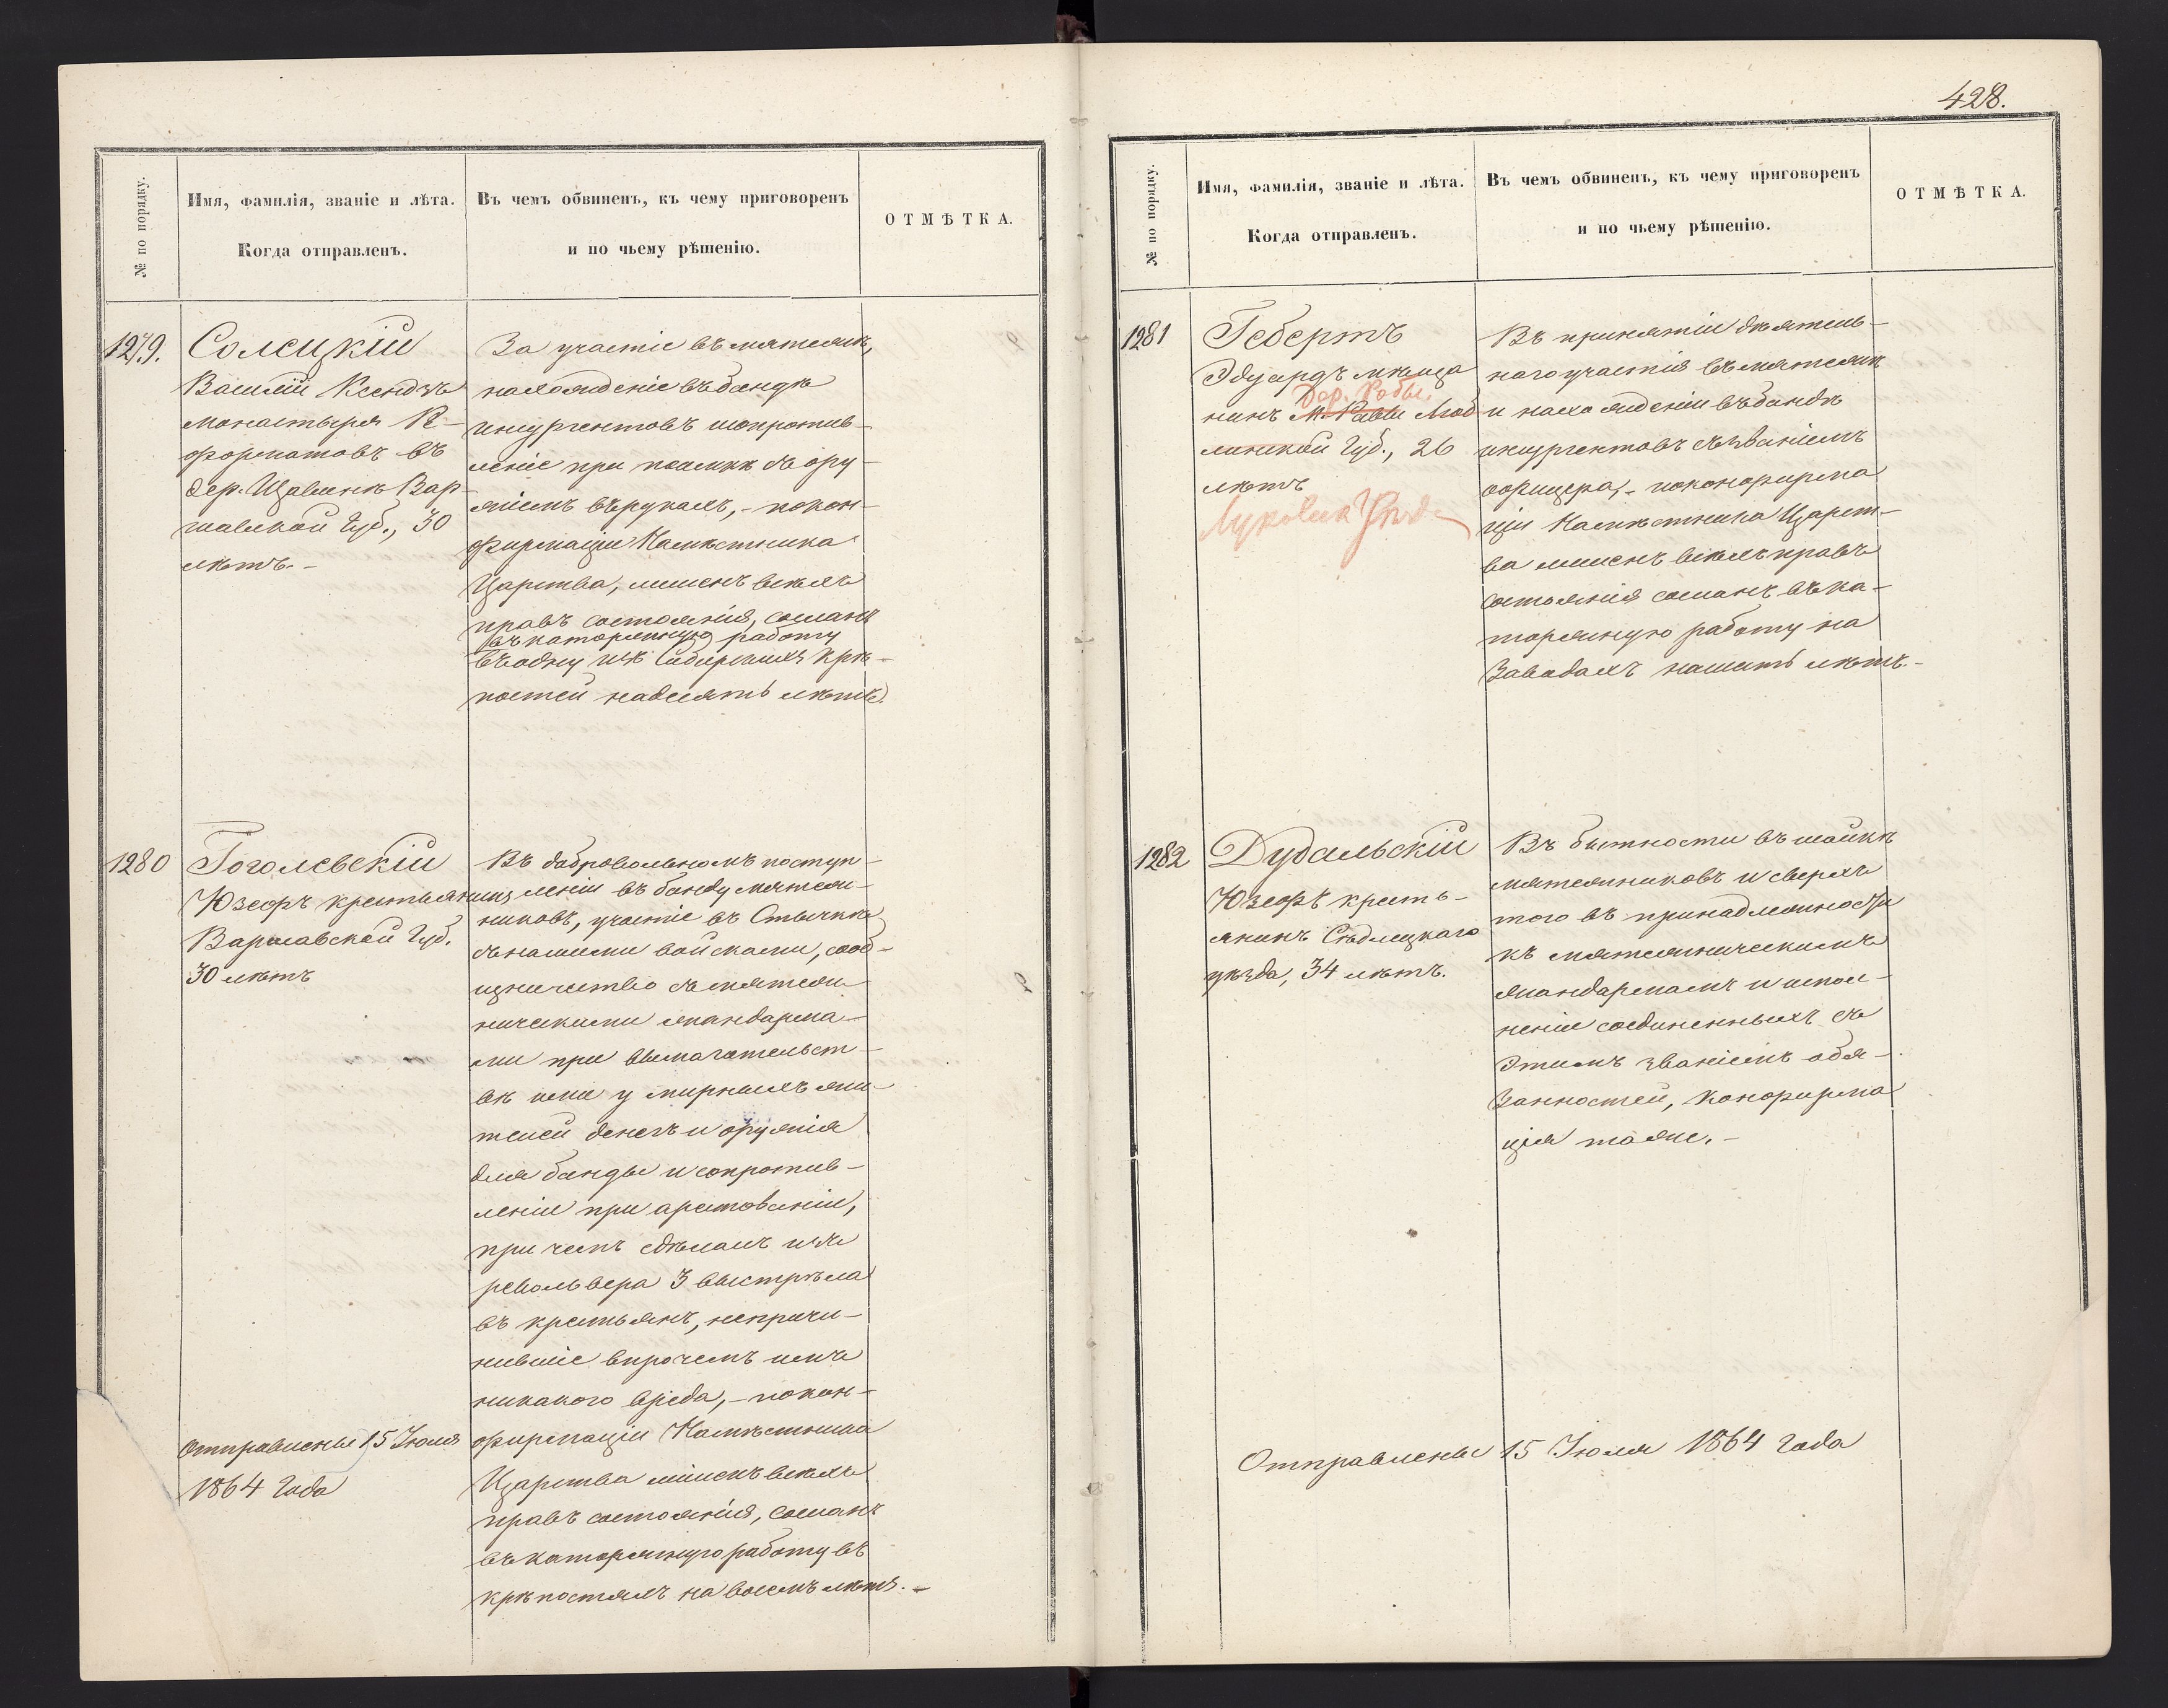 № по порядку.
Имя, фамилія, званіе и лѣта.
Когда отправленъ.
Въ чемъ обвиненъ, къ чему приговоренъ
и по чьему рѣшенію.
ОТМѢТКА.
1279.
Солецкій
Василій Ксендзъ
монастыря Ре-
форматовъ въ
дер. Щавинѣ Вар-
шавской Губ., 30
лѣтъ.-
За участіе въ мятежѣ,
нахожденіе въ бандѣ
инсургентовъ и сопротив-
леніе при поимкѣ съ ору-
жіемъ въ рукахъ, - по кон-
фирмаціи Намѣстника
Царства, лишенъ всѣхъ
правъ состоянія, сосланъ
въ каторжную работу
въ одну изъ Сибирскихъ крѣ-
постей на десять лѣтъ.
1280
Гоголевскій
Юзефъ крестьянинъ
Варшавской Губ.
30 лѣтъ
Отправлены 15 Іюля
1864 года
Въ добровольномъ поступ-
леніи въ банду мятеж-
никовъ, участіе въ стычкѣ
съ нашими войсками, сооб-
щничество съ мятеж-
ническими жандарма-
ми при вымогательст-
вѣ ими у мирныхъ жи-
телей денегъ и оружія
для банды и сопротив-
леніи при арестованіи,
при чемъ сдѣлалъ изъ
револьвера 3 выстрѣла
въ крестьянъ, непричи-
нившіе впрочемъ имъ
никакого вреда, - по кон-
фирмаціи Намѣстника
Царства лишенъ всѣхъ
правъ состоянія, сосланъ
въ каторжную работу въ
крѣпостяхъ на восемь лѣтъ.-
428.
№ по порядку.
Имя, фамилія, званіе и лѣта.
Когда отправленъ.
Въ чемъ обвиненъ, къ чему приговоренъ
и по чьему рѣшенію.
ОТМѢТКА.
1281
Гебертъ
Эдуардъ мѣща
дер. Робы,
нинъ М. Равы Люб
линской Губ., 26
лѣтъ
Луковск Уѣзд
Въ принятіи дѣятель-
наго участія въ мятежѣ
и нахожденіи въ бандѣ
инсургентовъ съ званіемъ
офицера, - по конфирма
ціи Намѣстника Царст-
ва лишенъ всѣхъ правъ
состоянія сосланъ въ ка-
торжную работу на
заводахъ на шесть лѣтъ.-
1282
Дудальскій
Юзефъ кресть-
янинъ Сѣдлецкаго
уѣзда, 34 лѣтъ.
Въ бытности въ шайкѣ
мятежниковъ и сверхъ
того въ принадлежности
къ мятежническимъ
жандармамъ и испол-
неніе соединенныхъ съ
этимъ званіемъ обя-
занностей, конфирма
ція тоже.-
Отправлены 15 Іюля 1864 года